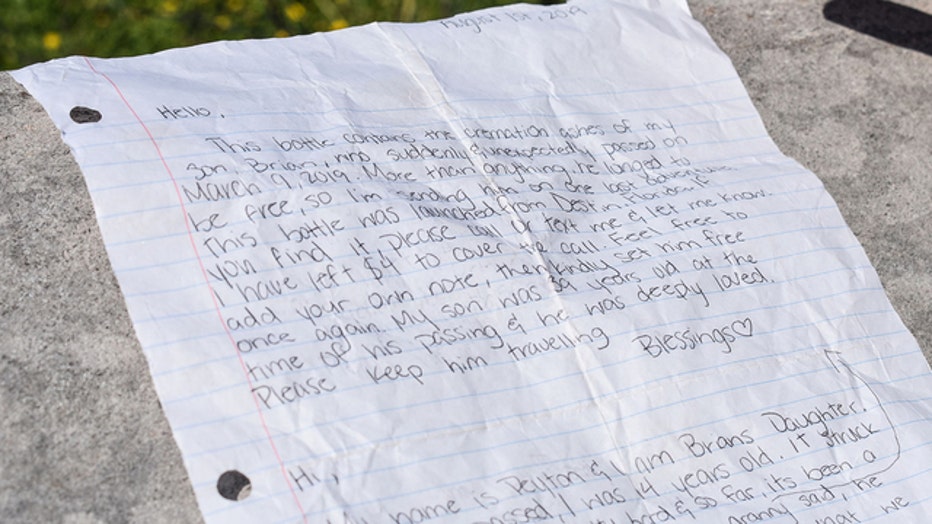 August 1st, 2019
Hello,
This bottle contains the cremation ashes of my
son, Brian, who suddenly & unexpectedly passed on
March 9, 2019. More than anything, he longed to
be free, so I'm sending him on one last adventure.
This bottle was launched from Destin, Florida. If
you find it please call or text me & let me know.
I have left $4 to cover the call. Feel free to
add your own note, then kindly set him free
once again. My son was 39 years old at the
time of his passing & he was deeply loved.
Please keep him travelling
Blessings♡
Hi,
name is Peyton & I am Brians Daughter.
passed, I was 14 years old. It struck
hard & so far, its been a
granny sad, he
that we